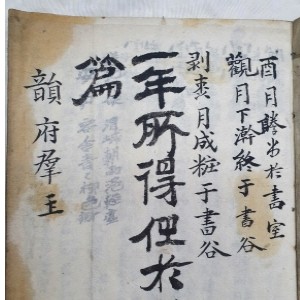 酉月謄於書室
觀月下澣終于書谷
剥棗月成粧于書谷
一年所得但於
篇
韻府羣玉